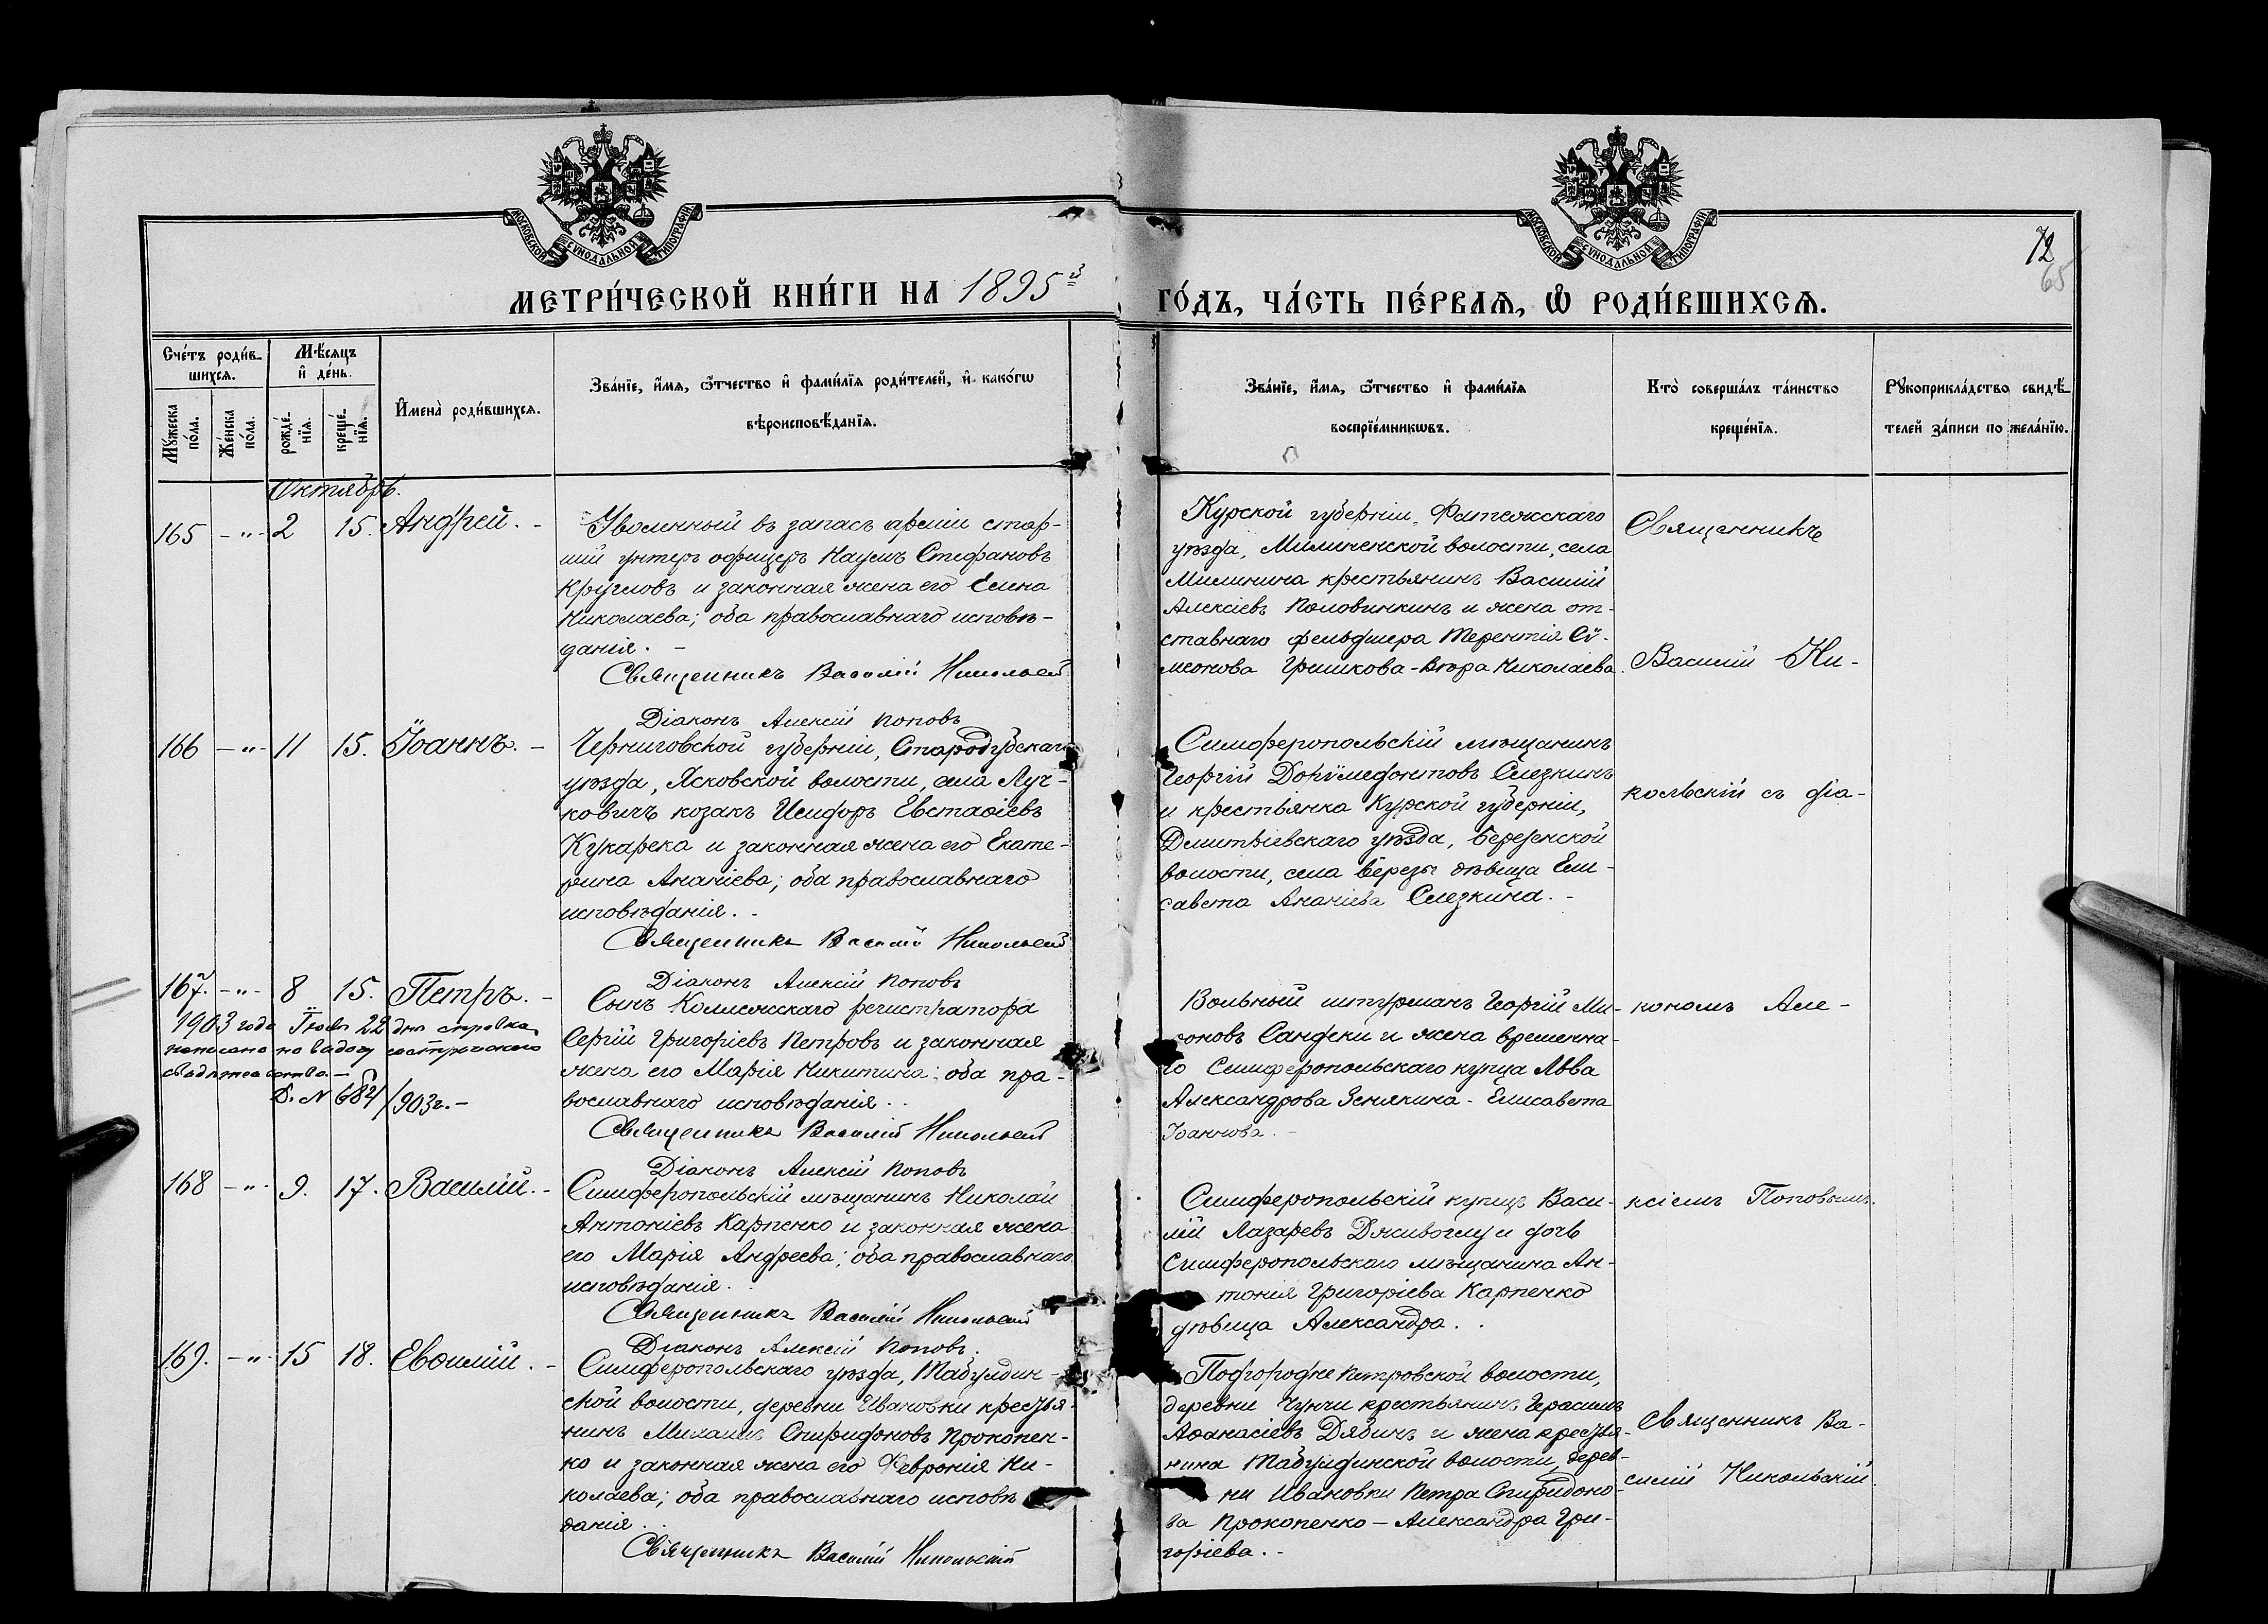 МОСКОВСКОЙ СѴНОДАЛЬНОЙ ТИПОГРАФІИ
МОСКОВСКОЙ СѴНОДАЛЬНОЙ ТИПОГРАФІИ
72
65
МЕТРИ́ЧЕСКОЙ КНИ́ГИ НА 1895й ГО́ДЪ, ЧА́СТЬ ПЕ́РВАѦ, Ѿ РОДИ́ВШИХСѦ.
Сче́тъ роди́в-
шихсѧ.
Мѣ́сѧцъ
и҆ де́нь.
Мꙋ́жеска
по́ла.
Же́нска
по́ла.
рожде́-
нїѧ.
креще́-
нїѧ.
И҆мена̀ роди́вшихсѧ.
Зва́нїе, и҆́мѧ, ѻ҆́тчество и҆ фами́лїѧ роди́телей, и҆ како́гѡ
вѣроисповѣ́данїѧ.
Зва́нїе, и҆́мѧ, ѻ҆́тчество и҆ фами́лїѧ
воспрїе́мникѡвъ.
Кто̀ соверша́лъ та́инство
креще́нїѧ.
Рꙋкоприкла́дство свидѣ́-
телей за́писи по жела́нїю.
Октябрь.
165 - " - 2 15. Андрей. -
Уволенный въ запасъ арміи стар-
шій унтеръ офицеръ Наумъ Стефановъ
Кругловъ и законная жена его Елена
Николаева; оба православнаго исповѣ-
данія. -
Священникъ Василій Никольскій
Діаконъ Алексій Поповъ
Курской губерніи, Фатежскаго
уѣзда, Милиненской волости, села
Милинина крестьянинъ Василій
Алексіевъ Половинкинъ и жена от-
ставнаго фельдшера Терентія Сѵ-
меонова Гришкова - Вѣра Николаева.
Священникъ
Василій Ни-
166 - " - 11 15. Іоаннъ. -
Черниговской губерніи, Стародубскаго
уѣзда, Ясковской волости, села Луч-
ковичъ козакъ Исидоръ Евстаѳіевъ
Кукарека и законная жена его Екате-
рина Ананіева; оба православнаго
исповѣданія. -
Священникъ Василій Никольскій
Діаконъ Алексій Поповъ
Симферопольскій мѣщанинъ
Георгій Дорѵмедонтовъ Слезкинъ
и крестьянка Курской губерніи,
Дмитріевскаго уѣзда, Березенской
волости, села Березы дѣвица Ели-
савета Ананіева Слезкина. -
кольскій съ діа-
167. - " - 8 15. Петръ. -
1903 года Іюля 22 дня справка
Д. N 684/903г. -
Сынъ Коллежскаго регистратора
Сергій Григоріевъ Петровъ и законная
жена его Марія Никитина; оба пра-
вославнаго исповѣданія. -
Священникъ Василій Никольскій
Діаконъ Алексій Поповъ
Вольный штурманъ Георгій Ми-
го Симферопольскаго купца Льва
Александрова Зенякина - Елисавета
Іоаннова. -
кономъ Але-
168 - " - 9. 17. Василій. -
Симферопольскій мѣщанинъ Николай
Антоніевъ Карпенко и законная жена
его Марія Андреева; оба православнаго
исповѣданія.
Священникъ Василій Никольскій
Діаконъ Алексій Поповъ.
Симферопольскій купецъ Васи-
лій Лазаревъ и дочь
Симферопольскаго мѣщанина Ан-
тонія Григоріева Карпенко
дѣвица Александра. .
ксіемъ Поповымъ.
169. - " - 15 18. Евѳимій. -
Симферопольскаго уѣзда, Табулдин-
ской волости, деревни Ивановки крестья-
нинъ Михаилъ Спиридоновъ Прокопен-
ко и законная жена его Февронія Ни-
колаева; оба православнаго исповѣ
данія. .
Священникъ Василій Никольскій
Подгородне Петровской волости,
деревни Чунчи крестьянинъ Герасимъ
Аѳанасіевъ Дядинъ и жена крестья-
нина Табулдинской волости, дерев-
ни Ивановки Петра Спиридоно-
ва Прокопенко - Александра Гри-
горіева. -
Священникъ Ва-
силій Никольскій